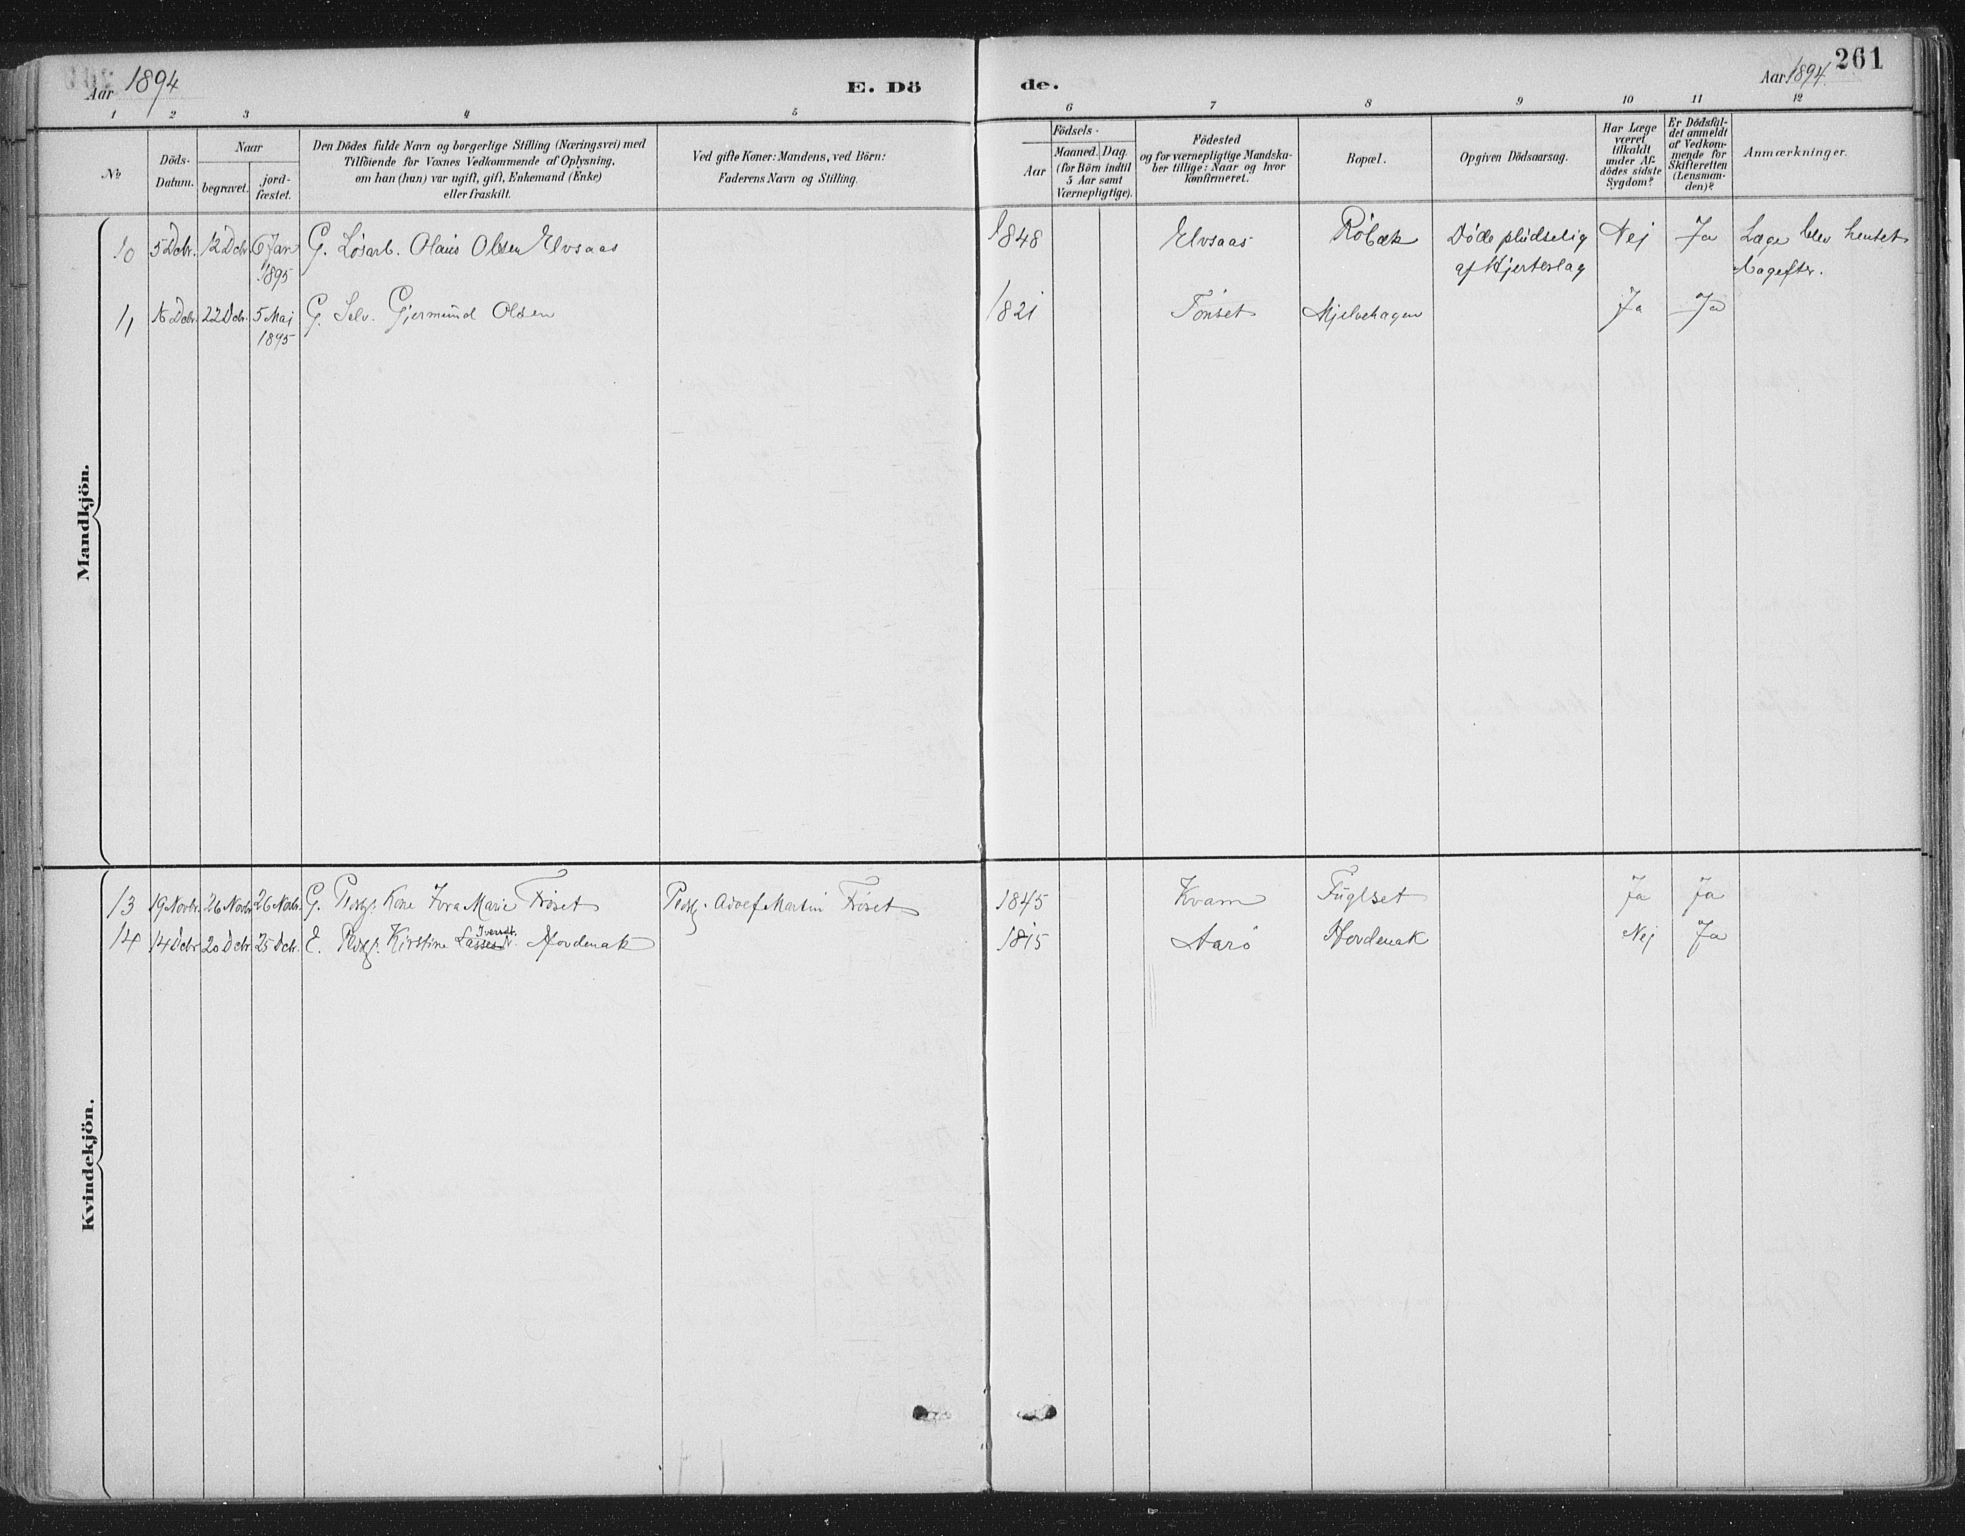 261
Aar 1894 E. Dö de. Aar 1894.
1 2 3 4 5 6 7 8 9 10 11 12
No
Döds-Datum.
Naar
begravet.
jord-fæstet.
Den Dödes fulde Navn og borgerlige Stilling (Næringsvei) med
Tilföiende for Voxnes Vedkommende af Oplysning,
om han (hun) var ugift, gift, Enkemand (Enke)
eller fraskilt.
Ved gifte Koner: Mandens, ved Börn:
Faderens Navn og Stilling.
Födsels-
Aar
Maaned. Dag.
(for Börn indtil
5 Aar samt
Værnepligtige).
Födested
og for værnepligtige Mandska-
ber tillige: Naar og hvor
konfirmeret.
Bopæl.
Opgiven Dödsaarsag.
Har Læge
været
tilkaldt
under Af-
dödes sidste
Sygdom?
Er Dödsfal-
det anmeldt
af Vedkom-
mende for
Skifteretten
(Lensman-
den)?
Anmærkninger.
Mandkjön.
10 5 Dcbr. 12 Dcbr. 6 Jan G. Løsarb. Olaus Olsen Elvsaas 1848 Elvsaas Røbæk Døde pludselig Nej Ja Læge blev hentet
1895 af Hjerteslag bagefter.
11 16 Dcbr. 22 Dcbr. 5 Maj G. Selv. Gjermund Olsen 1821 Tønset Mjelvehagen Ja Ja
1895
Kvindekjön.
13 19 Novbr. 26 Novbr. 26 Novbr. G. Kone Marie Frøset Adolf Martin Frøset 1845 Kvam Fuglset Ja Ja
14 14 Dcbr. 20 Dcbr. 25 Dcbr. E. Kirstine Hovdenak 1815 Aarø Hovdenak Nej Ja